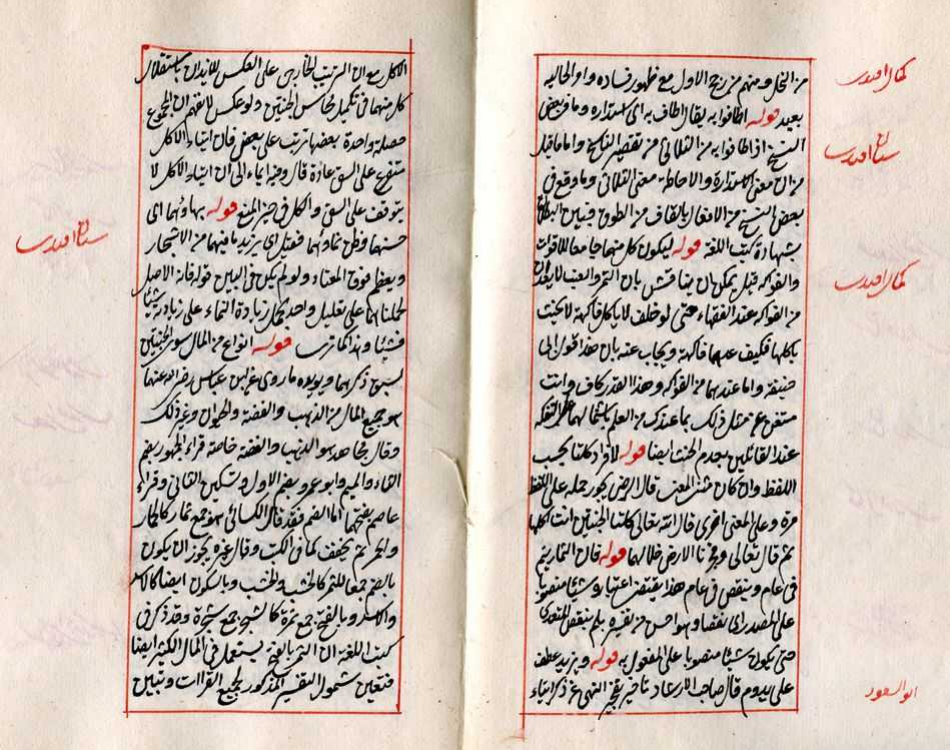 من النخل ومنهم من رجح الاول مع ظهور فساده واو الحاليه
كمال افندى
بعيد قوله اطافوا به يقال اطاف به اى استداره وما فى بعض
النسخ اذا طافوا به من الثلاثى من تقصير الناسخ واما ما قيل
سنان افندى
من ان معنى الاستدارة والاحاطة معنى الثلاثى وما وقع فى
بعض النسخ من الافعال بالقاف من الطوق فبين البطلان
بشهادة كتب اللغة قوله ليكون كل منهما جامعا للاقوات
والفواكه قيل يمكن ان يناقش بان التمر والعنب لا يعدان
كمال افندى
من الفواكه عند الفقهاء حتى لو حلف لا ياكل فاكهة لا يحنث
باكلها فكيف عدهما فاكهة ويجاب عنه بان هذا قول ابى
حنيفة واما عندهما من الفواكه وهذا القدر كاف وانت
مستغن عن مثل ذلك بما عندك من العلم باشتمالهما على التفكه
عند القائلين بعدم الحنث ايضا قوله لافراد كلتا بحسب
اللفظ وان كان مثنى المعنى قال الرضى يجوز حمله على اللفظ
مرة وعلى المعنى اخرى قال الله تعالى كلتا الجنتين اتت اكلها
ثم قال تعالى وفجرنا الارض خلالهما قوله فان الثمار يتم
فى عام وينقص فى عام هذا يقتضى اعتبار شيئا منصوبا
على المصدر اى نقصا وهو احسن من تفسيره بلم ينقص المتعدى
حتى يكون شيئا منصوبا على المفعول به قوله ويزيد عطف
على يدوم قال صاحب الارشاد تاخير تفجير النهر عن ذكر ايتاء
ابو السعود
الاكل مع ان الترتيب الخارجى على العكس للايذان باستقلال
كل منهما فى تكميل محاسن الجنتين ولو عكس لانفهم ان المجموع
خصلة واحدة بعضها ترتب على بعض فان ايتاء الاكل
متفرع على السقى عادة قال وفيه ايماء الى ان ايتاء الاكل لا
يتوقف على السقى والكل فى حيز المنع قوله بهاؤهما اى
سنان افندى
حسنهما وظن نماؤهما فقيل اى يزيد ما فيهما من الاشجار
ويعظم فوق المعتاد ولو لم يكن فى البين قوله فانه الاصل
لحملناهما على تعليل واحد بحمل زيادة النماء على زيادته شيئا
فشيئا وهذا كما ترى قوله انواع من المال سوى الجنتين
لسبق ذكرهما ويؤيده ما روى عن ابن عباس رضى الله عنهما
هو جميع المال من الذهب والفضة والحيوان وغير ذلك
وقال مجاهد هو الذهب والفضة خاصة قراء الجمهور بضم
الثاء والميم وابو عمرو بضم الاول وتسكين الثانى وقراء
عاصم بفتحهما اما الضم فقد قال الكسائى هو جمع ثمار كالحمار
والحمر ثم يخفف كما فى الكتب وقال غيره يجوز ان يكون
بالضم جمعا للثمر كالخشب والخشب وبالسكون ايضا كالاسد
والاسد وبالفتح جمع ثمرة كالشجر جمع شجرة وقد ذكر فى
كتب اللغة ان الثمر بالفتح يستعمل فى المال الكثير ايضا
فتعين شمول التفسير المذكور لجميع القراات وتبين